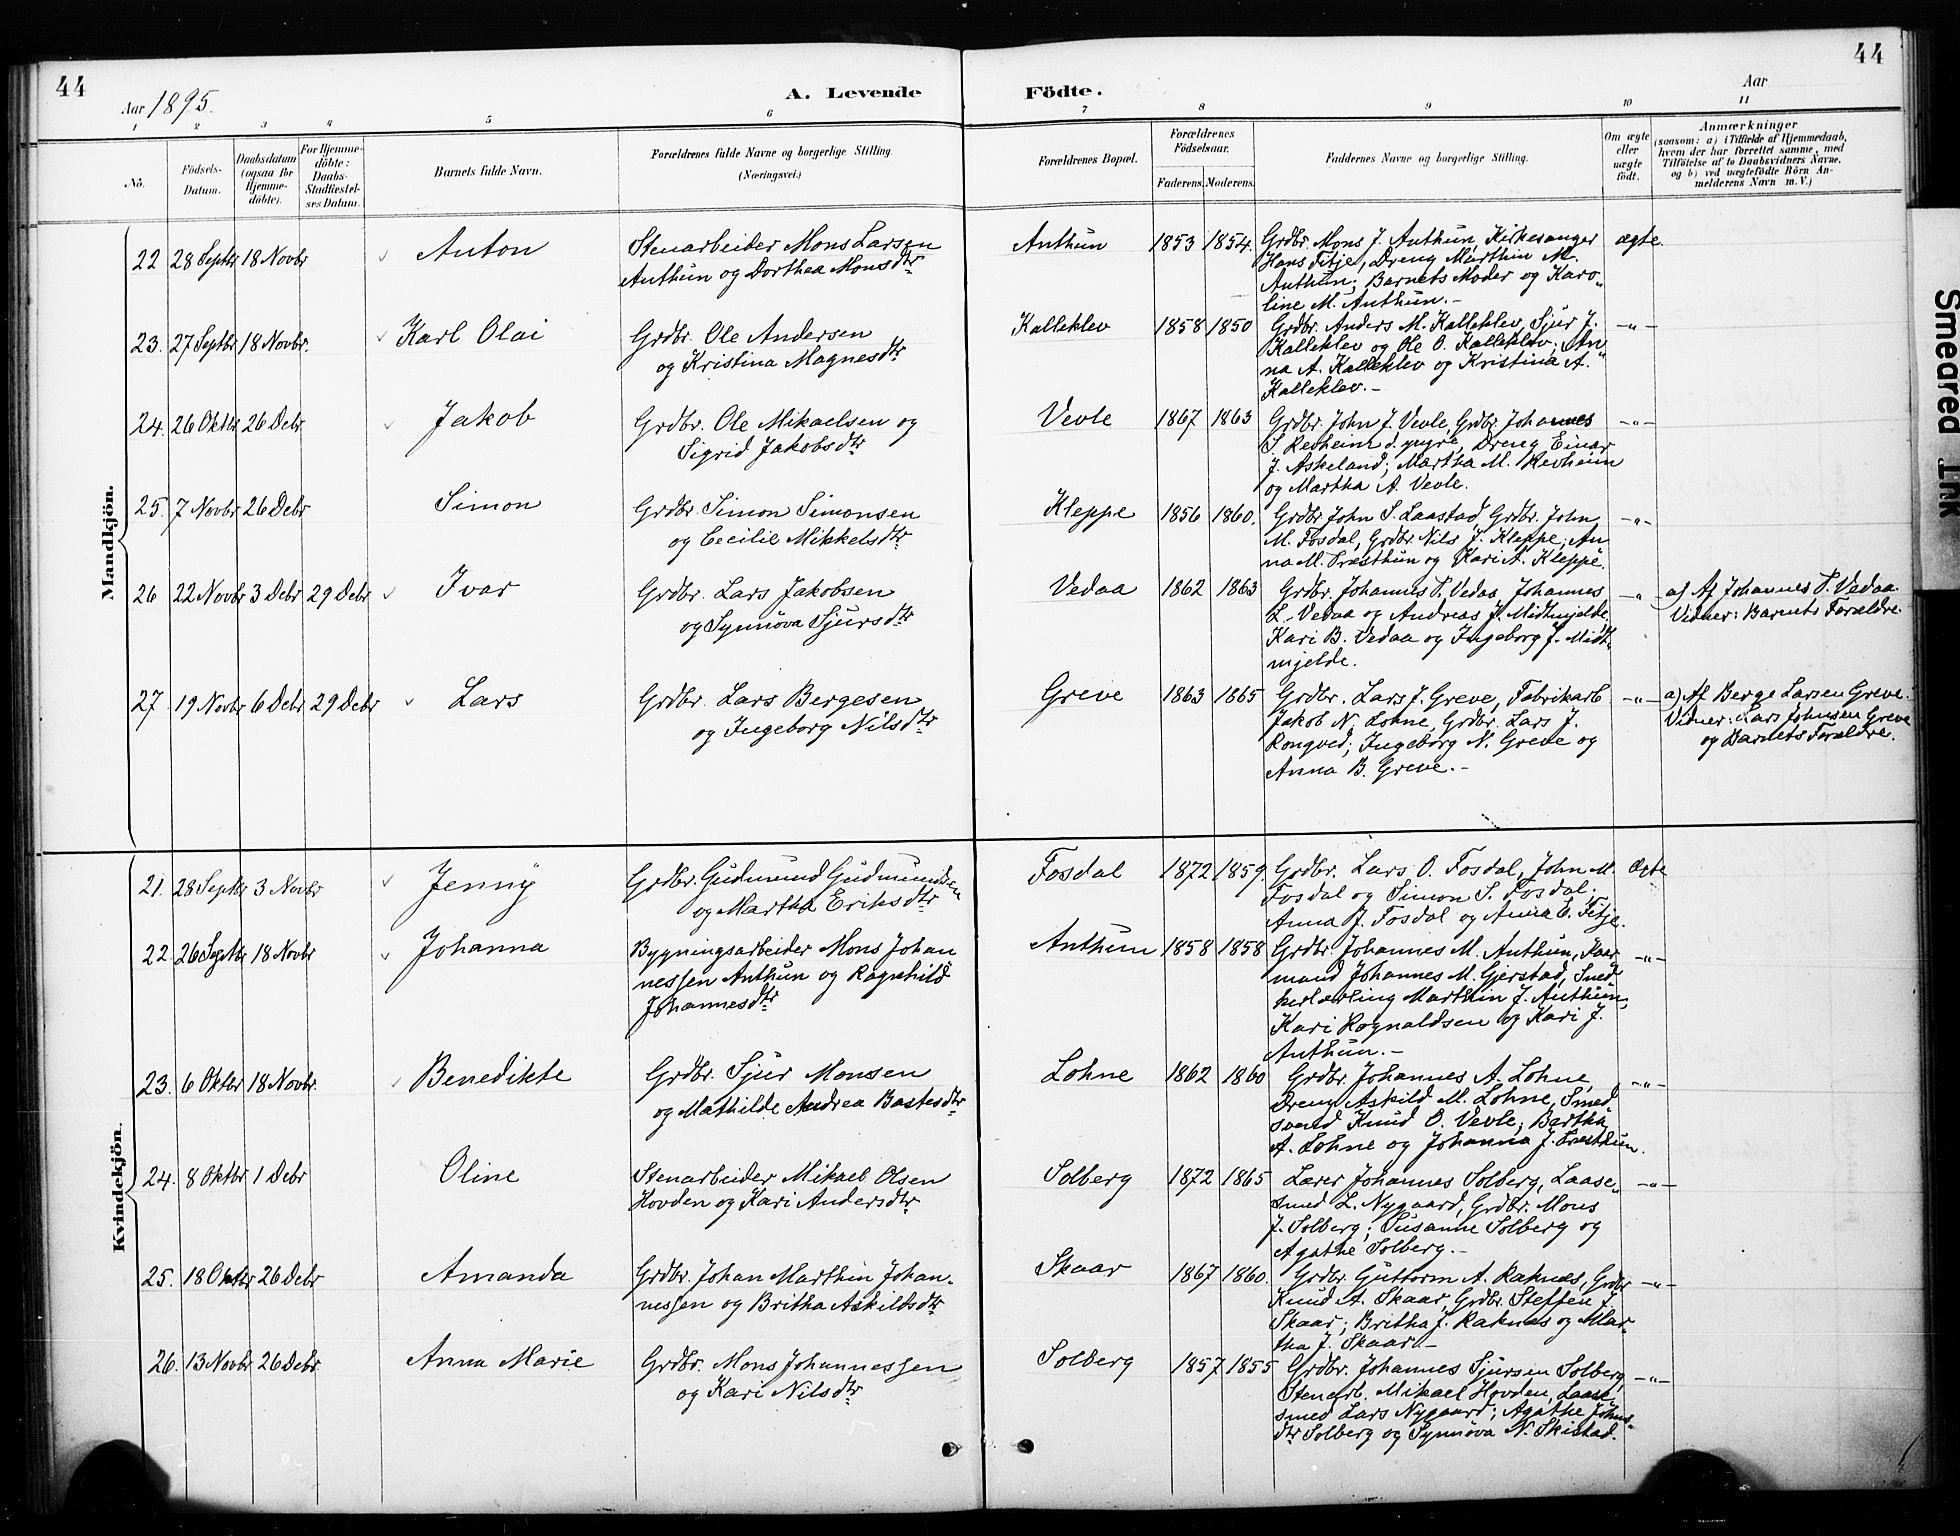 44
Aar 1895.
A. Levende Födte.
Aar
44
1 2 3 4 5 6 7 8 9 10 11
No.
Födsels-Datum.
Daabsdatum (ogsaa for Hjemmedöbte).
For Hjemmedöbte: Daabs-Stadfæstelses Datum.
Barnets fulde Navn.
Forældrenes fulde Navne og borgerlige Stilling.
(Næringsvei.)
Forældrenes Bopæl.
Forældrenes Födselsaar.
Faderens. Moderens.
Faddernes Navne og borgerlige Stilling.
Om ægte eller uægte födt.
Anmærkninger
(saasom: a) i Tilfælde af Hjemmedaab,
hvem der har forrettet samme, med
Tilföielse af to Daabsvidners Navne.
og b) ved uægtefödte Börn An-
melderens Navn m. V.)
Mandkjön.
22 28 Septbr 18 Novbr Anton Stenarbeider Mons Larsen
Anthun og Dorthea Monsdtr
Anthun 1853 1854. Grdbr. Mons J. Anthun, Kirkesanger ægte
Hans Fitje, Dreng Marthin M.
Anthun; Barnets Moder og Karo„
line M. Anthun.-
23. 27 Septbr 18 Novbr. Karl Olai Grdbr. Ole Andersen
og Kristina Magnesdtr
Kalleklev 1858 1850 Grdbr. Anders M. Kalleklev, Sjur J. -„-
Kalleklev og Ole O. Kalleklev; An„
na A. Kalleklev og Kristina A.
Kalleklev.-
24. 26 Oktbr 26 Debr. Jakob Grdbr. Ole Mikaelsen og
Sigrid Jakobsdtr
Vevle 1867 1863 Grdbr. John J. Vevle, Grdbr. Johannes -„-
S. Revheim d. yngre, Dreng Einar
J. Askeland; Martha M. Revheim
og Martha A. Vevle.
25. 7 Novbr 26 Debr Simon Grdbr. Simon Simonsen
og Cecilie Mikkelsdtr
Kleppe 1856 1860. Grdbr. John S. Laastad, Grdbr. John -„-
M. Fosdal, Grdbr. Nils J. Kleppe; An
na M. Præsthun og Kari A. Kleppe.
26 22 Novbr 3 Debr 29 Debr Ivar Grdbr. Lars Jakobsen
og Synnöva Sjursdtr
Vedaa 1862 1863 Grdbr. Johannes P. Vedaa, Johannes -„- a) Af Johannes P. Vedaa.
L. Vedaa og Andreas J. Midtmjelde. Vidner: Barnets Forældre
Kari B. Vedaa og Ingeborg J. Midt„
mjelde.
27. 19 Novbr 6 Debr 29 Debr Lars Grdbr. Lars Bergesen
og Ingeborg Nilsdtr
Greve 1863 1865 Grdbr. Lars J. Greve, Fabrikarb. -„- a) Af Berge Larsen Greve.
Jakob N. Lohne, Grdbr. Lars J. Vidner: Lars Johnsen Greve
Rongved; Ingeborg N. Greve og og Barnets Forældre.
Anna B. Greve.-
Kvindekjön.
21. 28 Septbr 3 Novbr Jenny Grdbr. Gudmund Gudmundsen
og Martha Eriksdtr
Fosdal 1872 1859. Grdbr. Lars O. Fosdal, John M. Ægte
Fosdal og Simon S. Fosdal;
Anna J. Fosdal og Anna E. Fitje.
22. 26 Septbr 18 Novbr Johanna Bygningsarbeider Mons Johan
nessen Anthun og Ragnhild
Johannesdtr
Anthun 1858 1858 Grdbr. Johannes M. Anthun, Kaar -„-
mand Johannes M. Gjerstad, Sned
kerlærling Marthin J. Anthun;
Kari Rognaldsen og Kari J.
Anthun.-
23. 6 Oktbr 18 Novbr. Benedikte Grdbr. Sjur Monsen
og Mathilde Andrea Bastesdtr
Lohne 1862 1860 Grdbr. Johannes A. Lohne, -„-
Dreng Askild M. Lohne, Smed
svend Knud O. Vevle; Bertha
A. Lohne og Johanna J. Præsthun.
24. 8 Oktbr 1 Debr Oline Stenarbeider Mikael Olsen
Hovden og Kari Andersdtr
Solberg 1872 1865 Lærer Johannes Solberg, Laase„ -„-
smed L. Nygaard, Grdbr. Mons
J. Solberg; Susanne Solberg og
Agathe Solberg.-
25. 18 Oktbr 26 Debr Amanda Grdbr. Johan Marthin Johan-
nessen og Britha Askildsdtr
Skaar 1867 1860. Grdbr. Guttorm A. Raknes, Grdbr. -„-
Knud A. Skaar, Grdbr. Steffen J.
Skaar; Britha J. Raknes og Mar-
tha J. Skaar.-
26. 13 Novbr 26 Debr. Anna Marie Grdbr. Mons Johannessen
og Kari Nilsdtr
Solberg 1857 1855 Grdbr. Johannes Sjursen Solberg, -„-
Stenarb. Mikael Hovden, Laase
smed Lars Nygaard; Agathe Johns-
dtr Solberg og Synnöva N. Skistad.
Smeared Ink